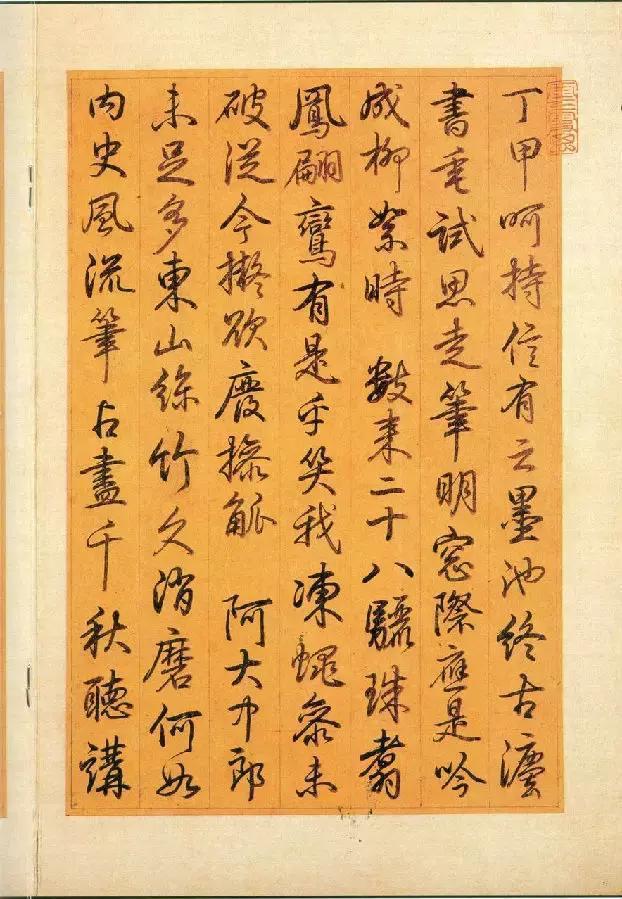 丁甲呵持信有之墨池終古灋
書垂試思走筆明窗際應是吟
成柳絮時　數來二十八驪珠翥
鳳翩鸞有是乎笑我凍蠅參未
破從今擬欲廢操觚　阿大中郎
未足多東山絲竹久消磨何如
内史風流筆占盡千秋聽講